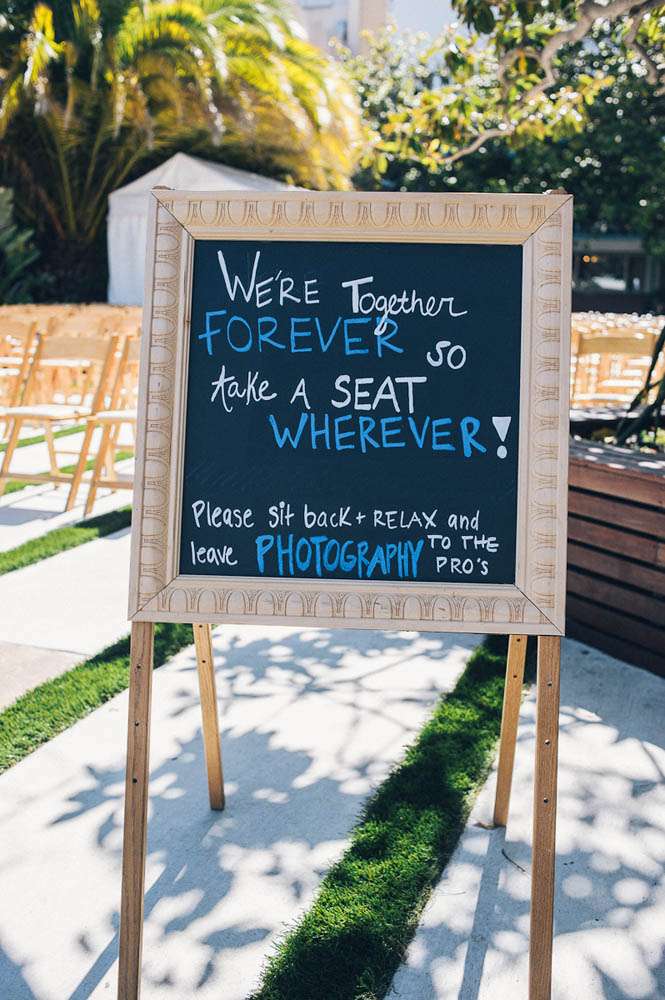 WE'RE Together
FOREVER SO
take A SEAT
WHEREVER!
Please sit back + RELAX and
leave PHOTOGRAPHY TO THE PRO'S